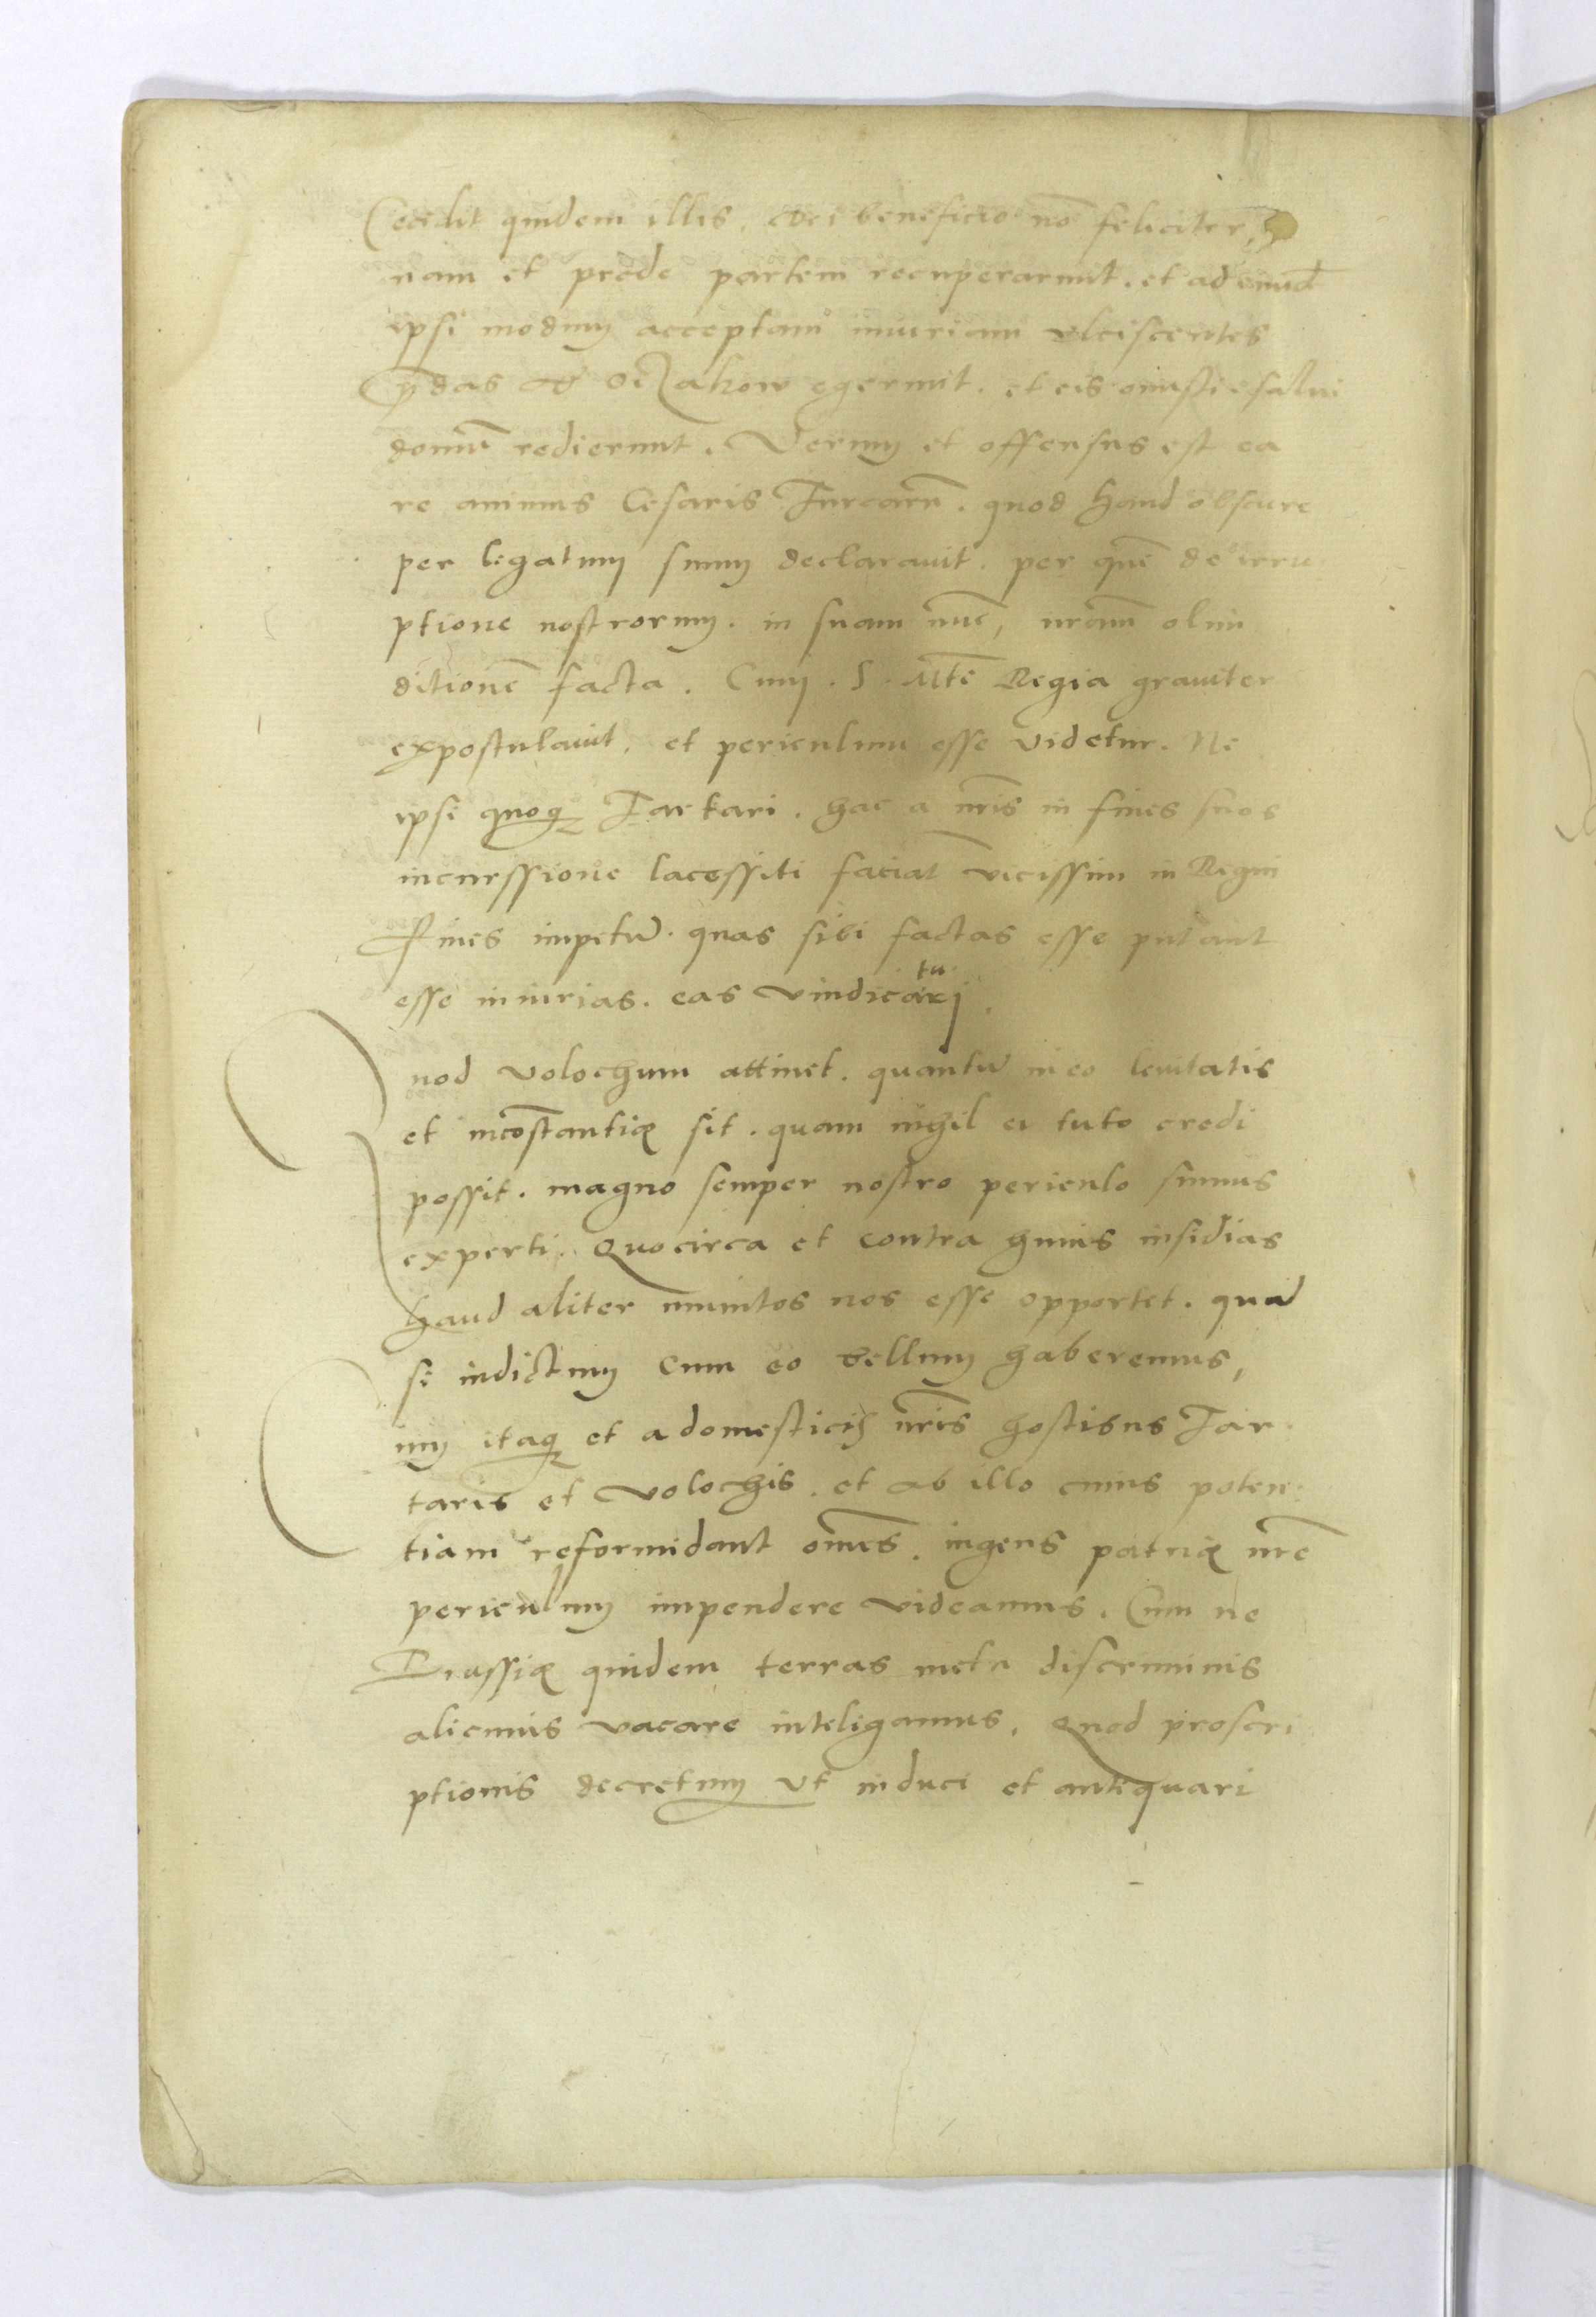 Cecidit quidem illis, Dei beneficio nō feliciter,
nam et prede partem recuperarunt. et ad eundē
ipsi modum acceptam iniuriam ulciscentes
p̄das ad Oczakow egerunt. et eis onusti salui
domū redierunt. Verum et offensus est ea
re animus Cesaris Turcarū. quod haud obscure
per legatum suum declarauit. per quē de irru
ptione nostrorum. in suam nūc, nram̄ olim
ditionē facta. Cum. S. Mte Regia grauiter
expostulauit. et periculum esse videtur. Ne
ipsi quoq Tartari. hac a nr̄is in fines suos
incurssione lacessiti faciāt vicissim in Regni
Fines impetū. quas sibi factas esse putant
esse iniurias. eas vindicaturi.
Quod volochum attinet. quantū in eo leuitatis
et incōstantię sit. quam nihil ei tuto credi
possit. magno semper nostro periculo sumus
experti. Quocirca et contra huius insidias
haud aliter munitos nos esse opportet. quā
si indictum cum eo bellum haberemus,
Cum itaq et a domesticis nr̄is hostibus Tar
taris et volochis. et ab illo cuius poten
tiam reformidant omēs. ingens patrię nrē
periculum impendere videamus. Cum ne
Prussię quidem terras metu discriminis
alicuius vacare inteligamus. Quod proscri
ptionis decretum vt induci et antiquari